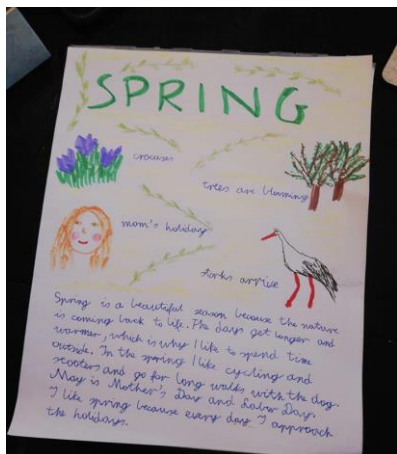 SPRING
crocuses
trees are blooming
mom's holiday
storks arrive
Spring is a beautiful season because the nature
is coming back to life. The days get longer and
warmer, which is why I like to spend time
outside. In the spring I like cycling and
scooters and go for long walks with the dog.
May is Mother's Day and Labor Day.
I like spring because every day I approach
the holidays.